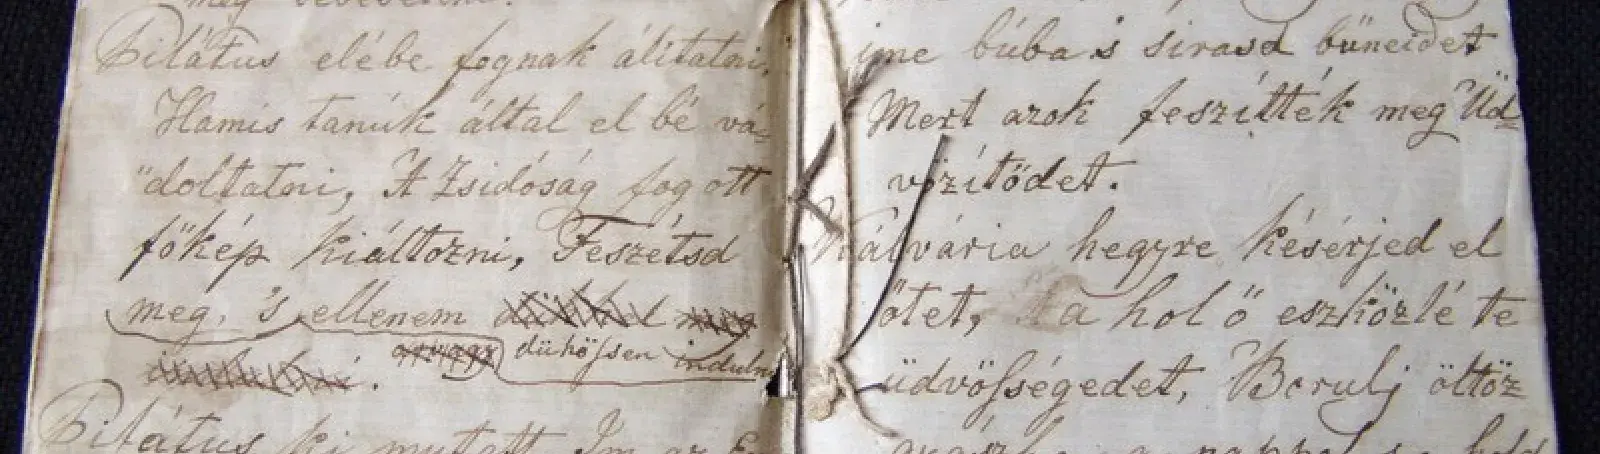 Pilátus elébe fognak álitatni,
Hamis tanúk által el bé vá-
doltatni, A Zsidóság fog ott
főkép kiáltozni, Feszétsd
meg, 's ellenem
dühössen indulni
Pilátus ki mutatt Im az
ime búba s sirasd bűneidet
Mert azok feszítték meg Üd-
vözítődet.
Kálvária hegyre késérjed el
őtet, a hol ő eszközlé te
üdvösségedet, Borulj öltöz
a nappal s a hold